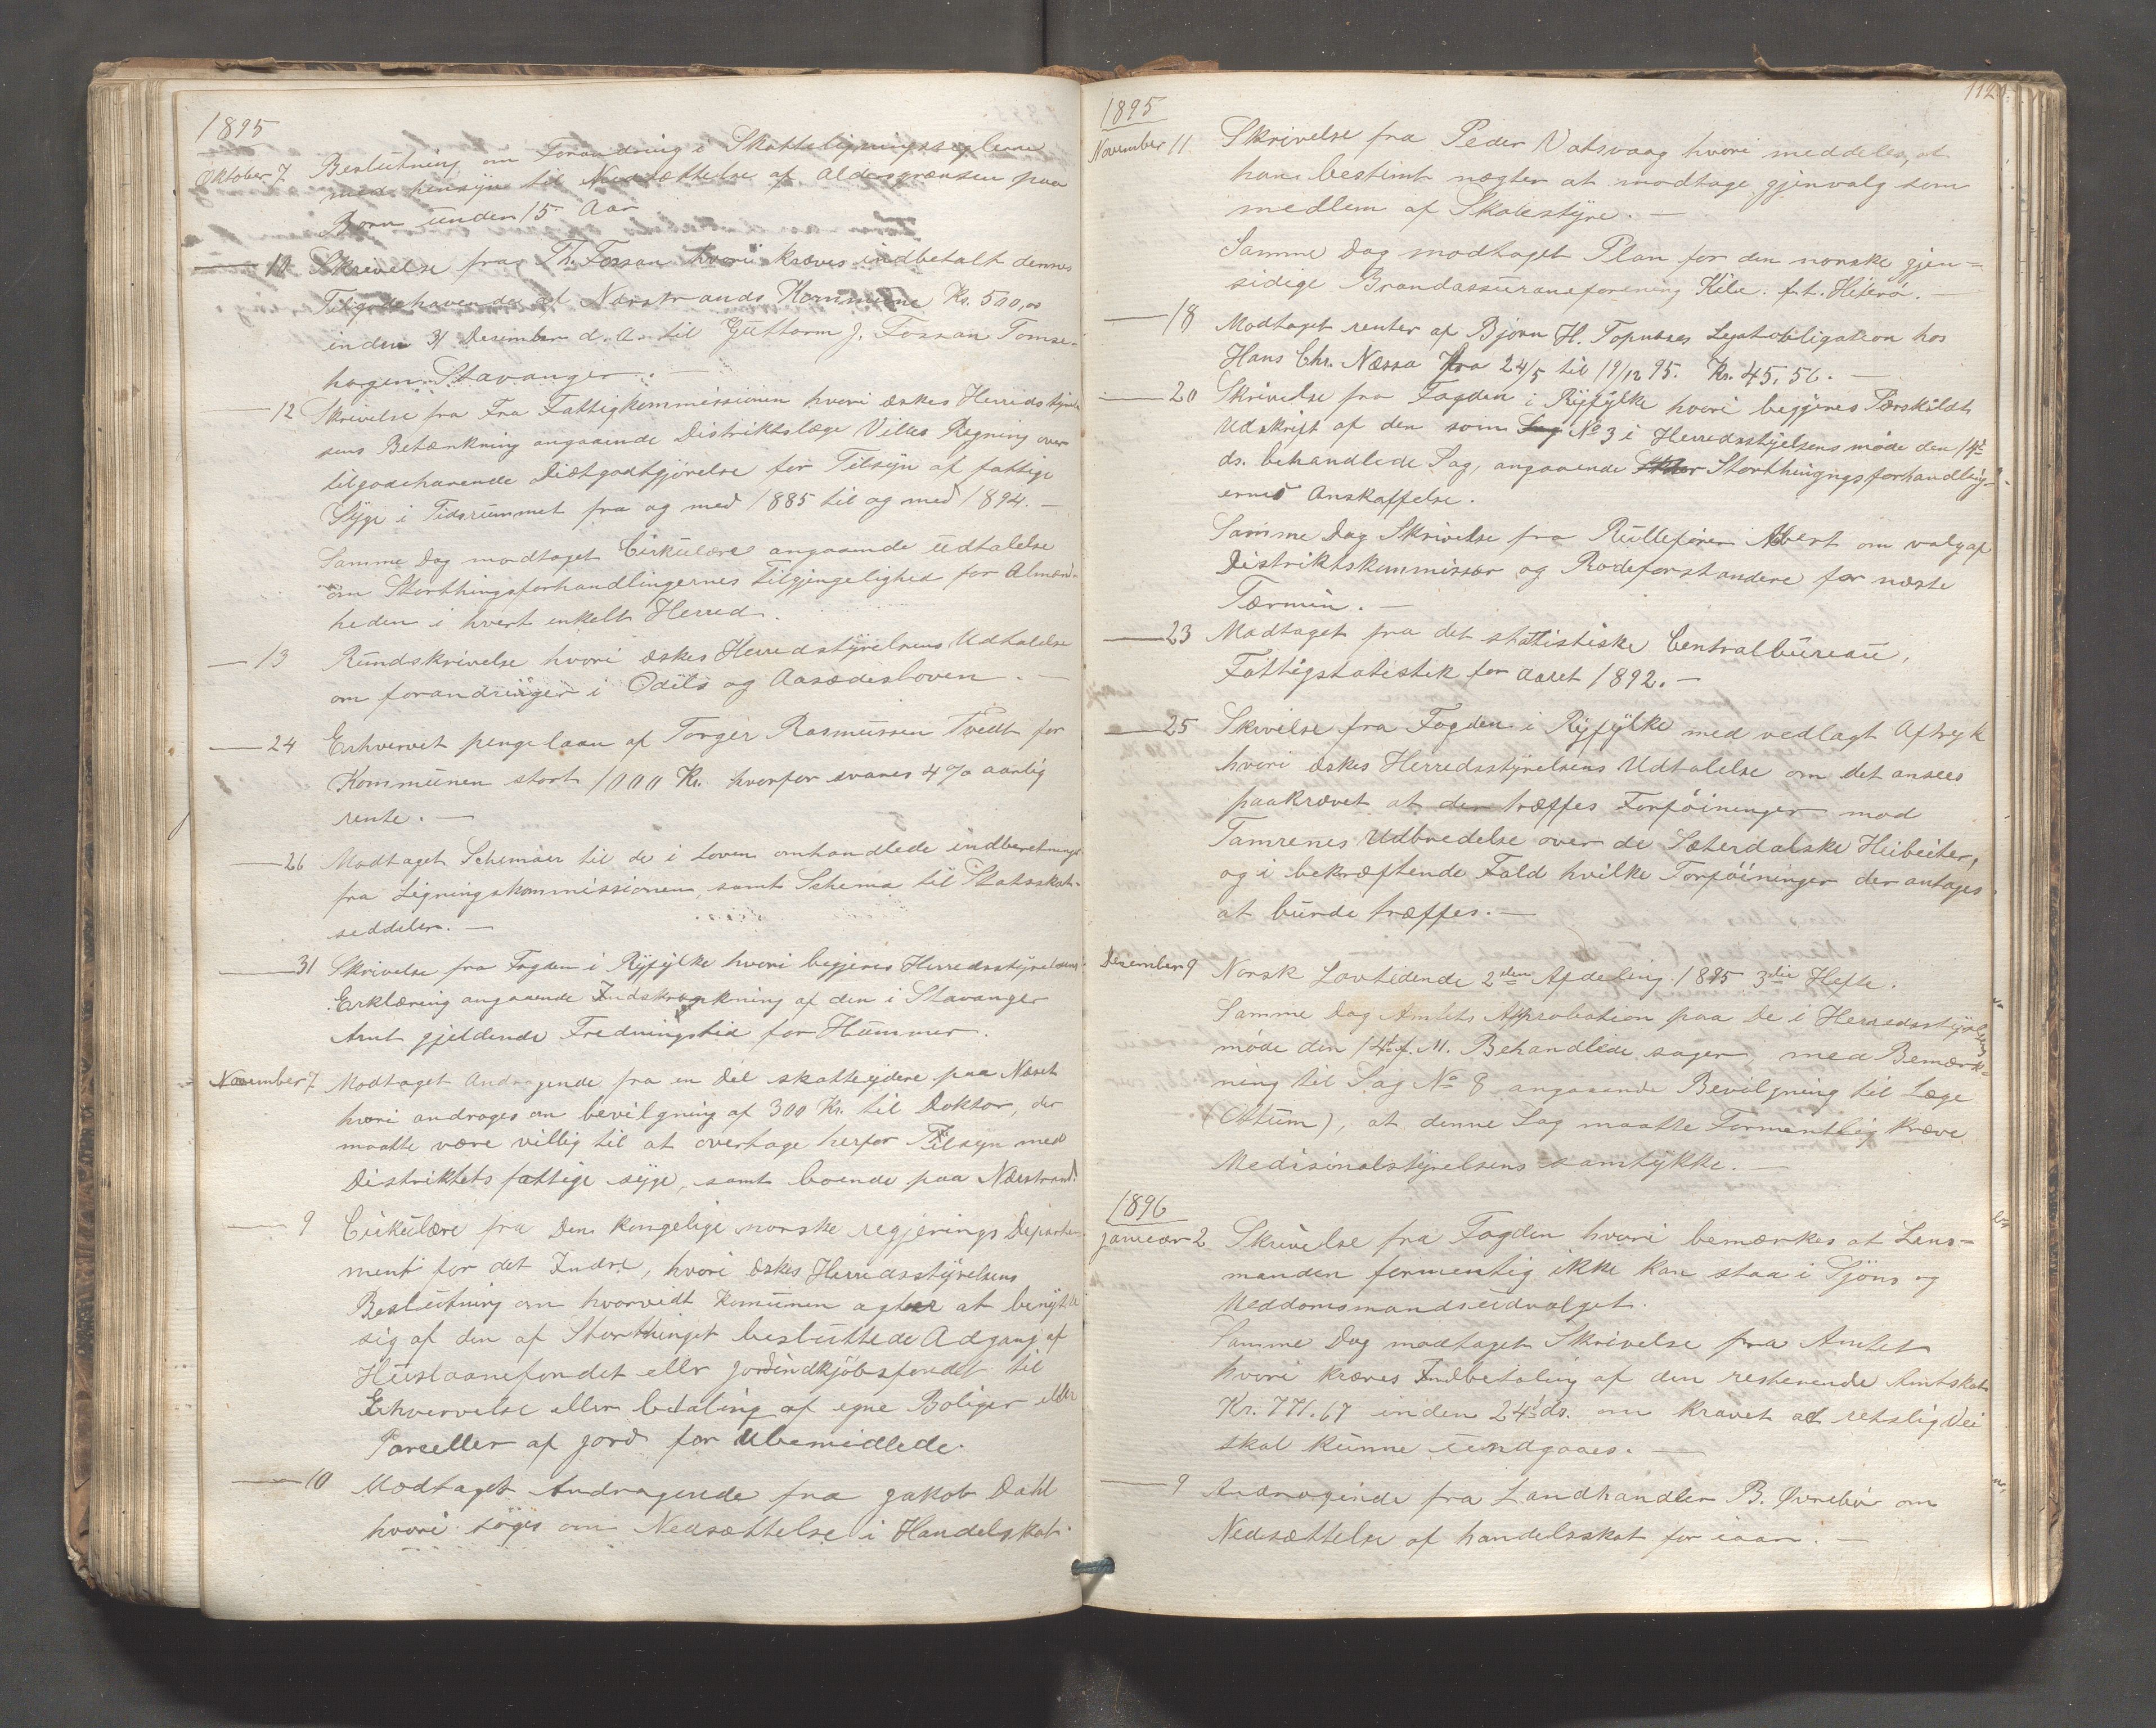 1895
Oktober 7 Beslutning om Forandring i Skatteligningsreglerne
med hensyn til Nedsættelse af Aldersgrænsen paa
Børn under 15 Aar
— 10 Skrivelse fra Th. Fossan hvori kræves indbetalt dennes
Tilgodehavende af Nærstrands Kommune Kr. 500,00
inden 31 Desember d. A. til Guttorm J. Fossan Tomse-
hagen Stavanger. —
— 12 Skrivelse fra Fra Fattigkommissionen hvori æskes Herredsstyrel-
sens Betænkning angaaende Distriktslæge Regning over
tilgodehavende Diætgodtgjörelse for Tilsyn af fattige
Syge i Tidsrummet fra og med 1885 til og med 1894. —
Samme Dag modtaget Cirkulære angaaende Udtalelse
om Storthingsforhandlingernes Tilgjengelighed for Almen-
heden i hvert enkelt Herred.
— 13 Rundskrivelse hvori æskes Herredsstyrelsens Udtalelse
om forandringer i Odels og Aasædesloven. —
— 24 Erhvervet pengelaan af Torger Rasmussen Tvedt for
Kommunen stort 1000 Kr. hvorfor svares 4% aarlig
rente. —
— 26 Modtaget Schemaer til de i Loven omhandlede indberetninger
fra Ligningskommissionen, samt Schema til Statsskat-
seddeler. —
— 31 Skrivelse fra Fogden i Ryfylke hvori begjeres Herredsstyrelsens
Erklæring angaaende Indskrænkning af den i Stavanger
Amt gjeldende Fredningstid for Hummer.
November 7 Modtaget Andragende fra en Del skatteydere paa Næset
hvori andrages om bevilgning af 300 Kr. til Doktor, der
maatte være villig til at overtage herfor Tilsyn med
Distriktets fattige syge, samt boende paa Nærstrand.
— 9 Cirkulære fra Den kongelige norske regjerings Departe-
ment for det Indre, hvori æskes Herredsstyrelsens
Beslutning om hvorvidt Komunen agter at benytte
sig af den af Storthinget besluttede Adgang af
Huslaanefondet eller jordindkjöbsfondet til
Erhvervelse eller betaling af egne Boliger eller
Parseller af jord for Ubemidlede.
— 10 Modtaget Andragende fra Jakob Dahl
hvori söges om Nedsættelse i Handelskat.
112
1895
November 11 Skrivelse fra Peder Vatsvaag hvori meddeles, at
han bestimt nægter at modtage gjenvalg som
medlem af Skolestyre. —
Samme Dag modtaget Plan for den norske gjen=
sidige Brandassuranceforening Kilde. f.t. Hiterö. —
— 18 Modtaget renter af Bjørn H. Legatobligation hos
Hans Chr. Næssa fra 24/5 til 19/12 95. Kr. 45,56. —
— 20 Skrivelse fra Fogden i Ryfylke hvori begjeres Særskildt
Udskrift af den som Sag No 3 i Herredsstyelsens möde den 14de
ds. behandlede Sag, angaaende Storthingsforhandling-
ernes Anskaffelse.
Samme Dag Skrivelse fra Rulleförer om valg af
Distriktskommissær og Rodeforstandere for næste
Termin. —
— 23 Modtaget fra det stattistiske Centralbureau,
Fattigstatistik for aaret 1892. —
— 25 Skrivelse fra Fogden i Ryfylke med vedlagt Aftryk
hvori æskes Herredsstyrelsens Udtalelse om det ansees
paakrævet at der træffes Forföininger mod
Tamrenes Udbredelse over de Sæterdalske Heibeiter,
og i bekræftende Fald hvilke Forföininger der antages
at burde træffes. —
Desember 9 Norsk Lovtidende 2den Afdeling 1895 3die Hefte.
Samme Dag Amtets Approbation paa de i Herredsstyrelsens
möde den 14de f. M. Behandlede sager, med Bemærk=
ning til Sag No 8 angaaende Bevilgning til Læge
(Ottum), at denne Sag maatte Formentlig kræve
Medisinalstyrelsens samtykke. —
1896
Januar 2 Skrivelse fra Fogden hvori bemærkes at Lens-
manden formentlig ikke kan staa i Sjöns og
Meddomsmandsudvalget.
Samme Dag modtaget Skrivelse fra Amtet
hvori kræves Indbetaling af den resterende Amtskat
Kr. 771.67 inden 24de ds. om kravet ad retslig Vei
skal kunne undgaaes. —
— 9 Andragende fra Landhandler B. Øvrebø om
Nedsættelse af handelsskat for iaar. —